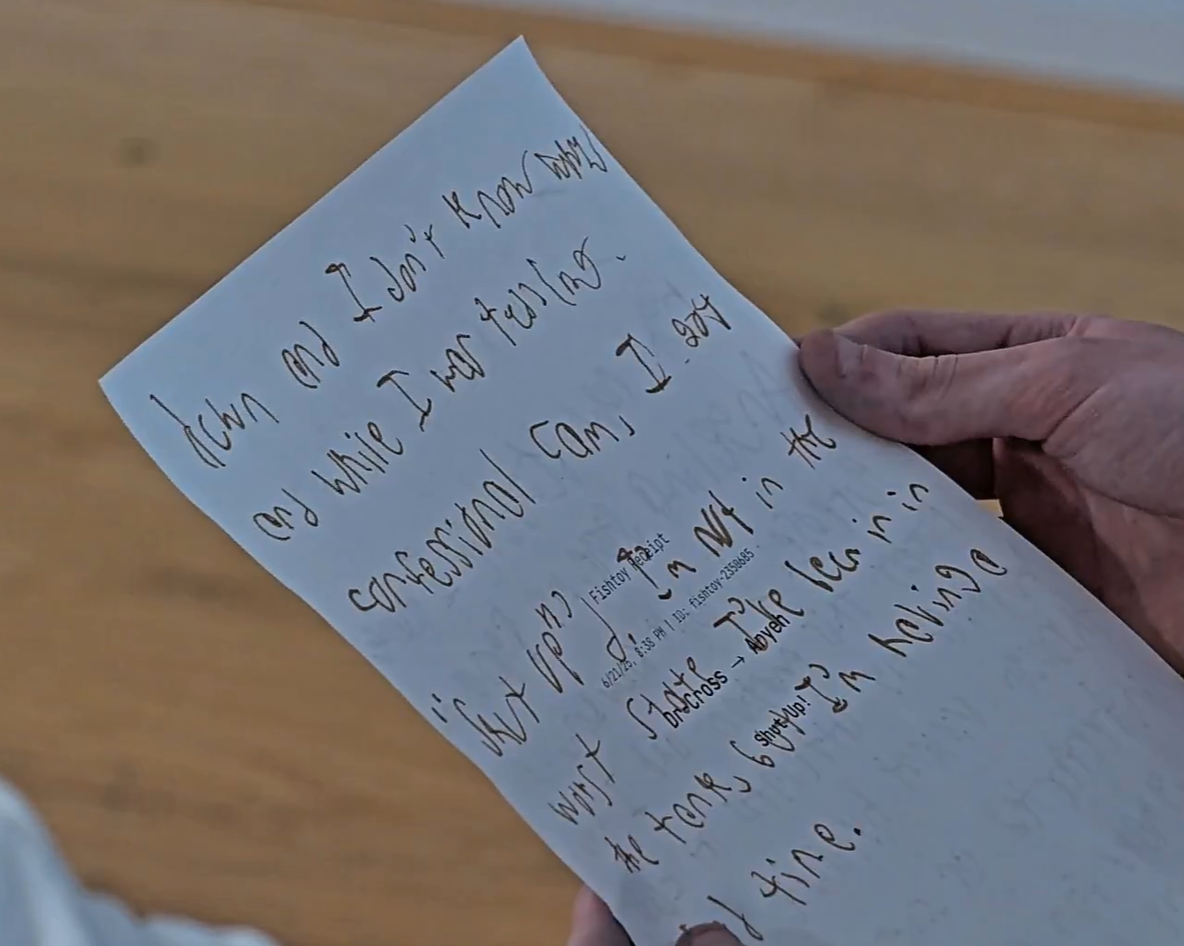 down and I don't know why
and while I was tess ing.
confessional cam, I got
"Shut up"
Fishtoy Receipt
6/21/25, 8:38 PM | ID: fishtoy-2350685
I'm NOT in the
worst state I've been in in
brocross → Abyene
Shut Up!
the tank, but I'm having a
time.